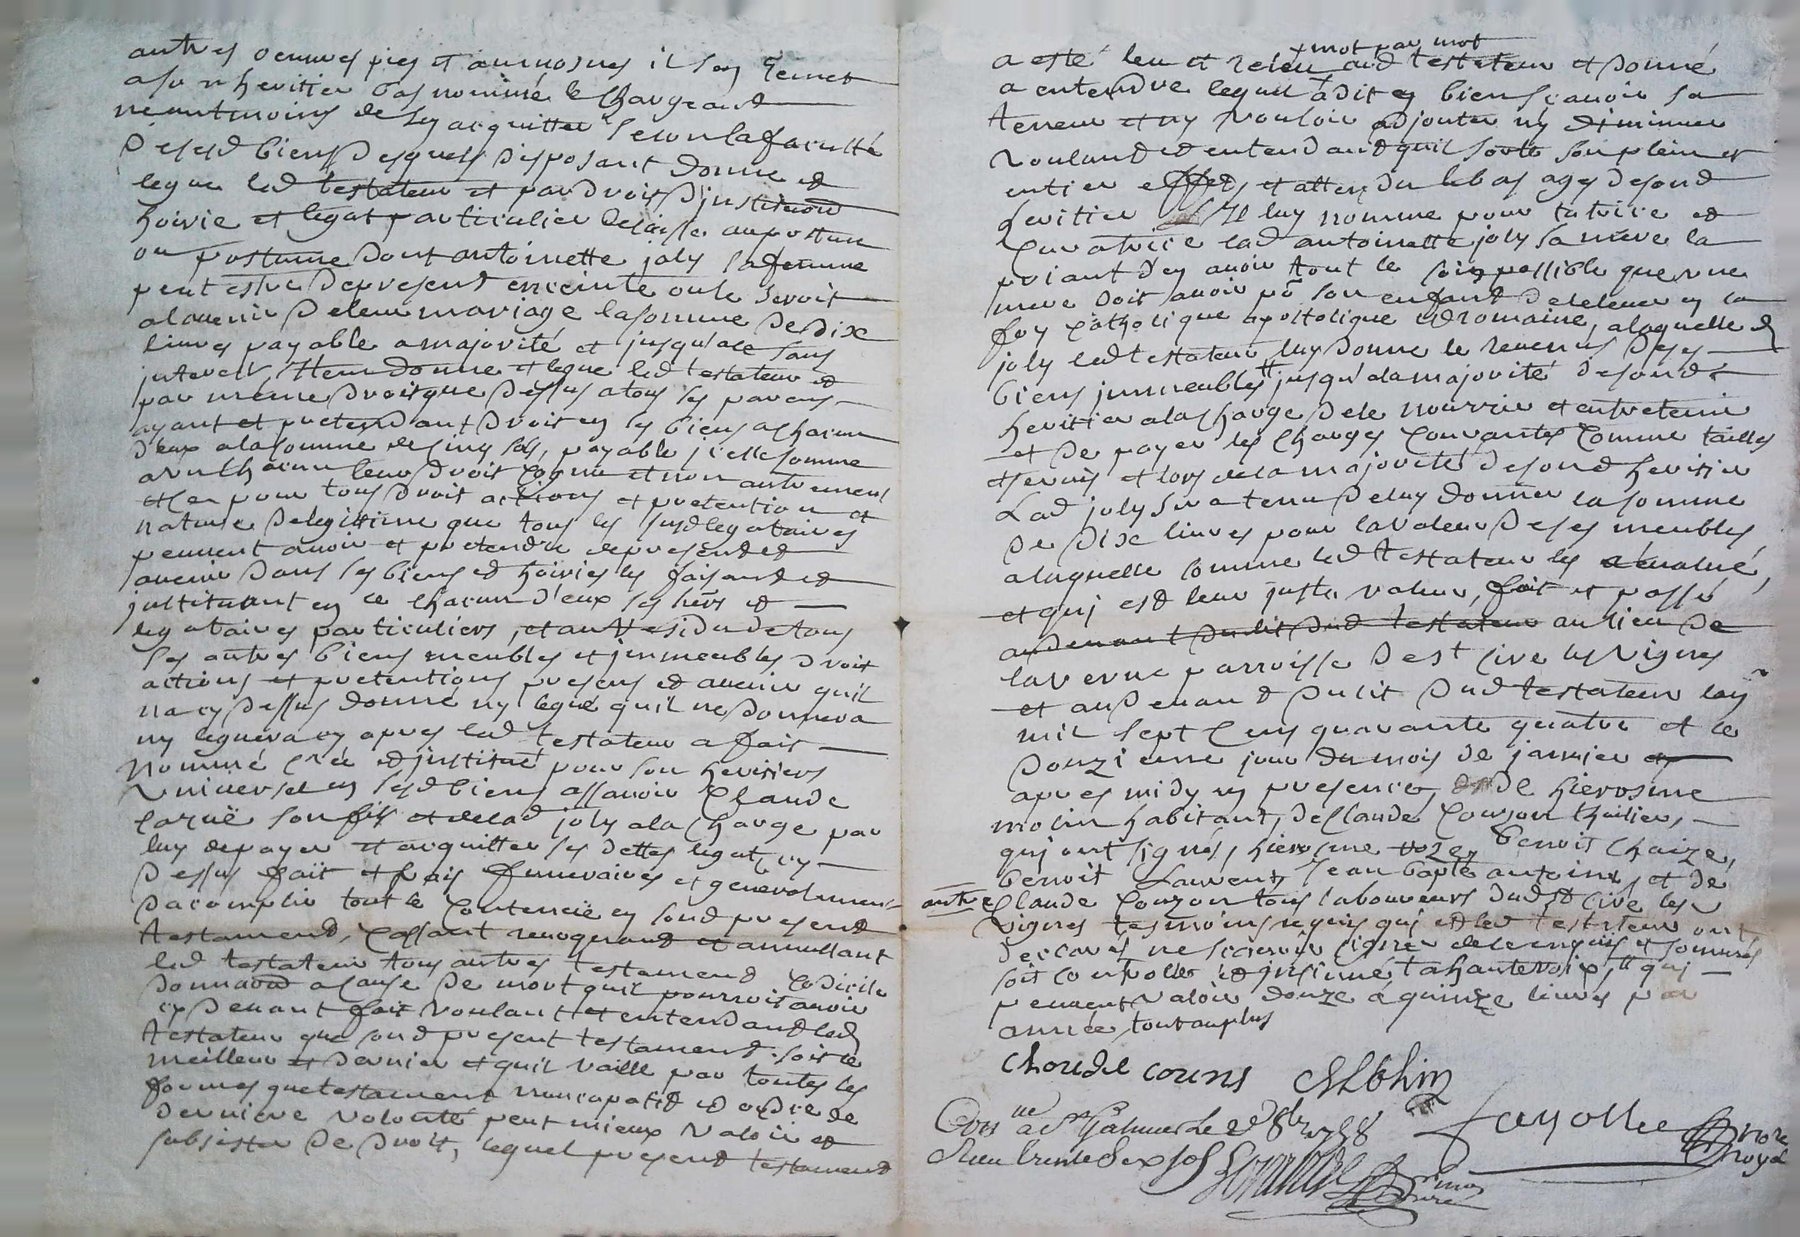 autres oeuures pies et aumosnes il sen remet
a son heritier bas nommé le chargeant
neantmoins de sen acquitter selon la faculté
de sesd biens desquels disposant donne et
legue led testateur et par droit d'institution
hoirie et legat particulier delaisse au postume
ou postume dont antoinette joly sa femme
peut estre de present enceinte ou le seroit
alauenir de leur mariage la somme de dix
liures payable a majorité et jusqu'alors sans
interest, Item donne et legue led testateur et
par méme droit que dessus a tous ses parens
ayant et pretendant droit en ses biens a chacun
d'eux a la somme de cinq sols, payable jcelle somme
a un chacun leur droit connu et non autrement
et ce pour tous droit actions et pretention et
nature de legitime que tous les susd legataires
peuuent auoir et pretendre de present et
auenir dans ses biens et hoiries les faisant et
jnstituant en ce chacun d'eux ses hers et
legataires particuliers, et au residu de tous
ses autres biens meubles et jmmeubles droit
actions et pretentions presens et auenir qu'il
na cy dessus donné ny legué qu'il ne donnera
ny leguera cy apres led testateur a fait
nommé créé et jnstitué pour son heritiers
vniuersel en sesd biens assauoir Claude
fils et delad joly a la charge par
luy de payer et acquitter ses dettes legat cy
dessus fait et frais funeraires et generalement
d'acomplir tout le contenüe en sond present
testament, cassant reuoquant et annullant
led testateur tous autres testament codicile
donnaon a cause de mort qu'il pourroit auoir
cy deuant fait voulant et entendant led
testateur que sond present testament soit le
meilleur et dernier et quil vaille par toutes les
formes que testament noncupatif et ordre de
derniere volonté peut mieux valoir et
subsister de droit, lequel present testament
a esté leu et releu mot par mot aud testateur et donné
a entendre lequel a dit en bien scauoir sa
teneur et ny vouloir adjouter ny diminuer
voulant et entendant quil sorte son plein et
entier effets et attendu le bas age de sond
heritier Il luy nomme pour tutrice et
curatrice lad antoinette joly sa mere la
priant d'en auoir tout le soin possible que vne
mere doit auoir pr son enfant de leleuer en la
foy catholique apostolique et romaine, a laquelle d
joly led testateur luy donne le reuenus de ses
biens jmmeubles jusqu'a la majorité de sond
heritier a la charge de le nourrir et entretenir
et de payer les charges courantes comme tailles
et seruis et lors de la majorité de sond heritier
Lad joly sera tenu de luy donner la somme
de dix liures pour la valeur de ses meubles
a laquelle somme led testateur les a éualué,
et qui est leur juste valeur, fait et passé
au deuant du lit dud testateur au lieu de
lauerne parroisse de st cire les vignes
et au deuant du lit dud testateur lan
mil sept cens quarante quatre et le
douzieme jour du mois de januier
apres midy en presence de hierosme
molin habitant, de Claude Couzon thuilier,
qui ont signés, hierosme benoit Chaize,
benoit Laurent, Jean bapte antoine, et de
autre Claude Couzon tous laboureurs dud st cire les
vignes tesmoins requis qui et led testateur ont
declarés ne scauoir signer de ce enquis et sommés
soit controllé et jnsinué qui
peuuent valoir douze a quinze liures par
année, tout au plus
Choudé couns
Con ue a St Galmier le 28
Receu trente six sols
fayolle nore
royal